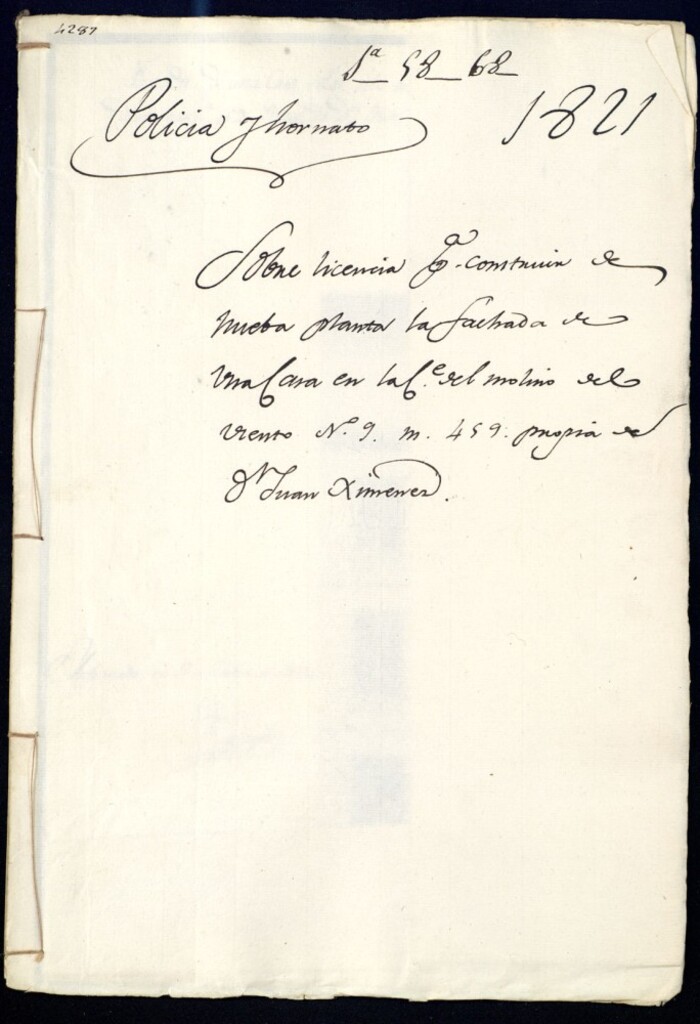 4287
1ª 58 68
Policia y hornato
1821
Sobre licencia pª. construir de
nueba planta la fachada de
una Casa en la Cᵉ. del molino del
viento N.º 9. m. 459. propia de
Dⁿ Juan Ximenez.